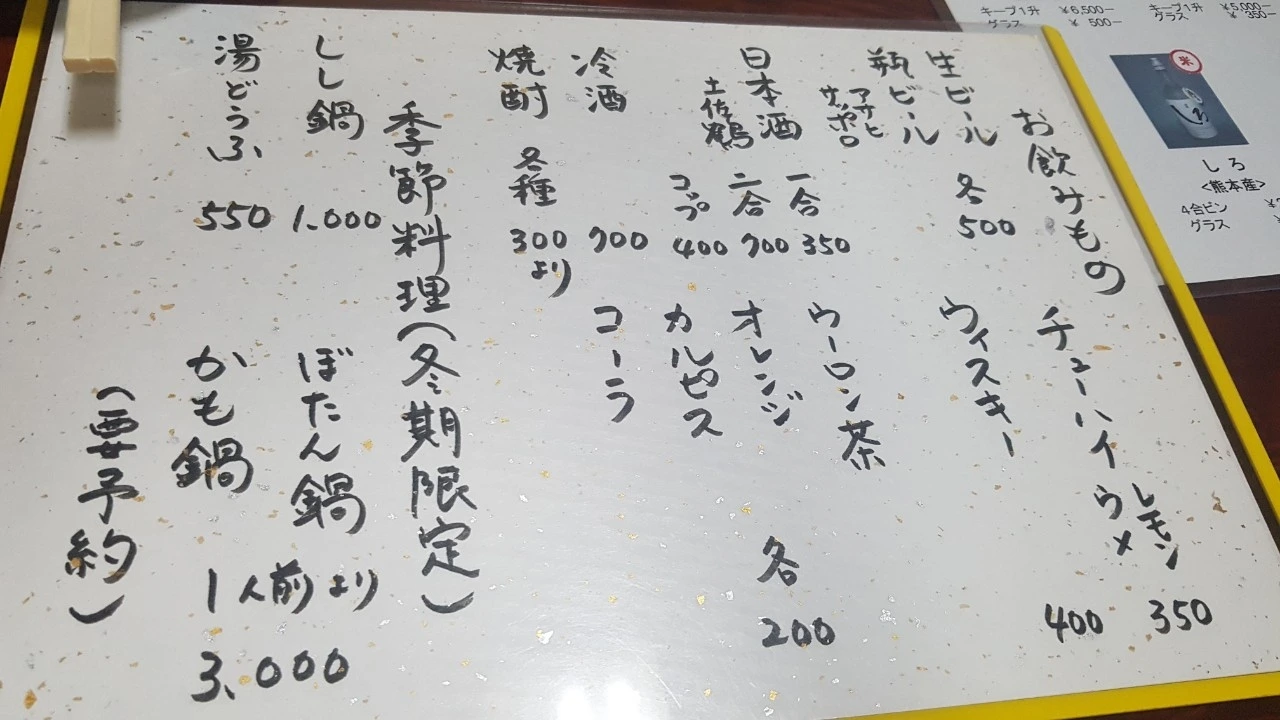 お飲みもの
生ビール
瓶ビール アサヒ サッポロ
各500
日本酒 土佐鶴
一合 350
二合 700
コップ 400
冷酒 700
焼酎 各種 300より
チューハイ レモン 350
ウメ 400
ウィスキー
ウーロン茶
オレンジ
カルピス
コーラ
各200
季節料理(冬期限定)
しし鍋 1.000
湯どうふ 550
ぼたん鍋
かも鍋
1人前より
3.000
(要予約)
キープ1升 ¥6,500-
グラス ¥ 500-
キープ1升 ¥5,000-
グラス ¥ 350-
米
しろ
しろ
<熊本産>
4合ビン
グラス